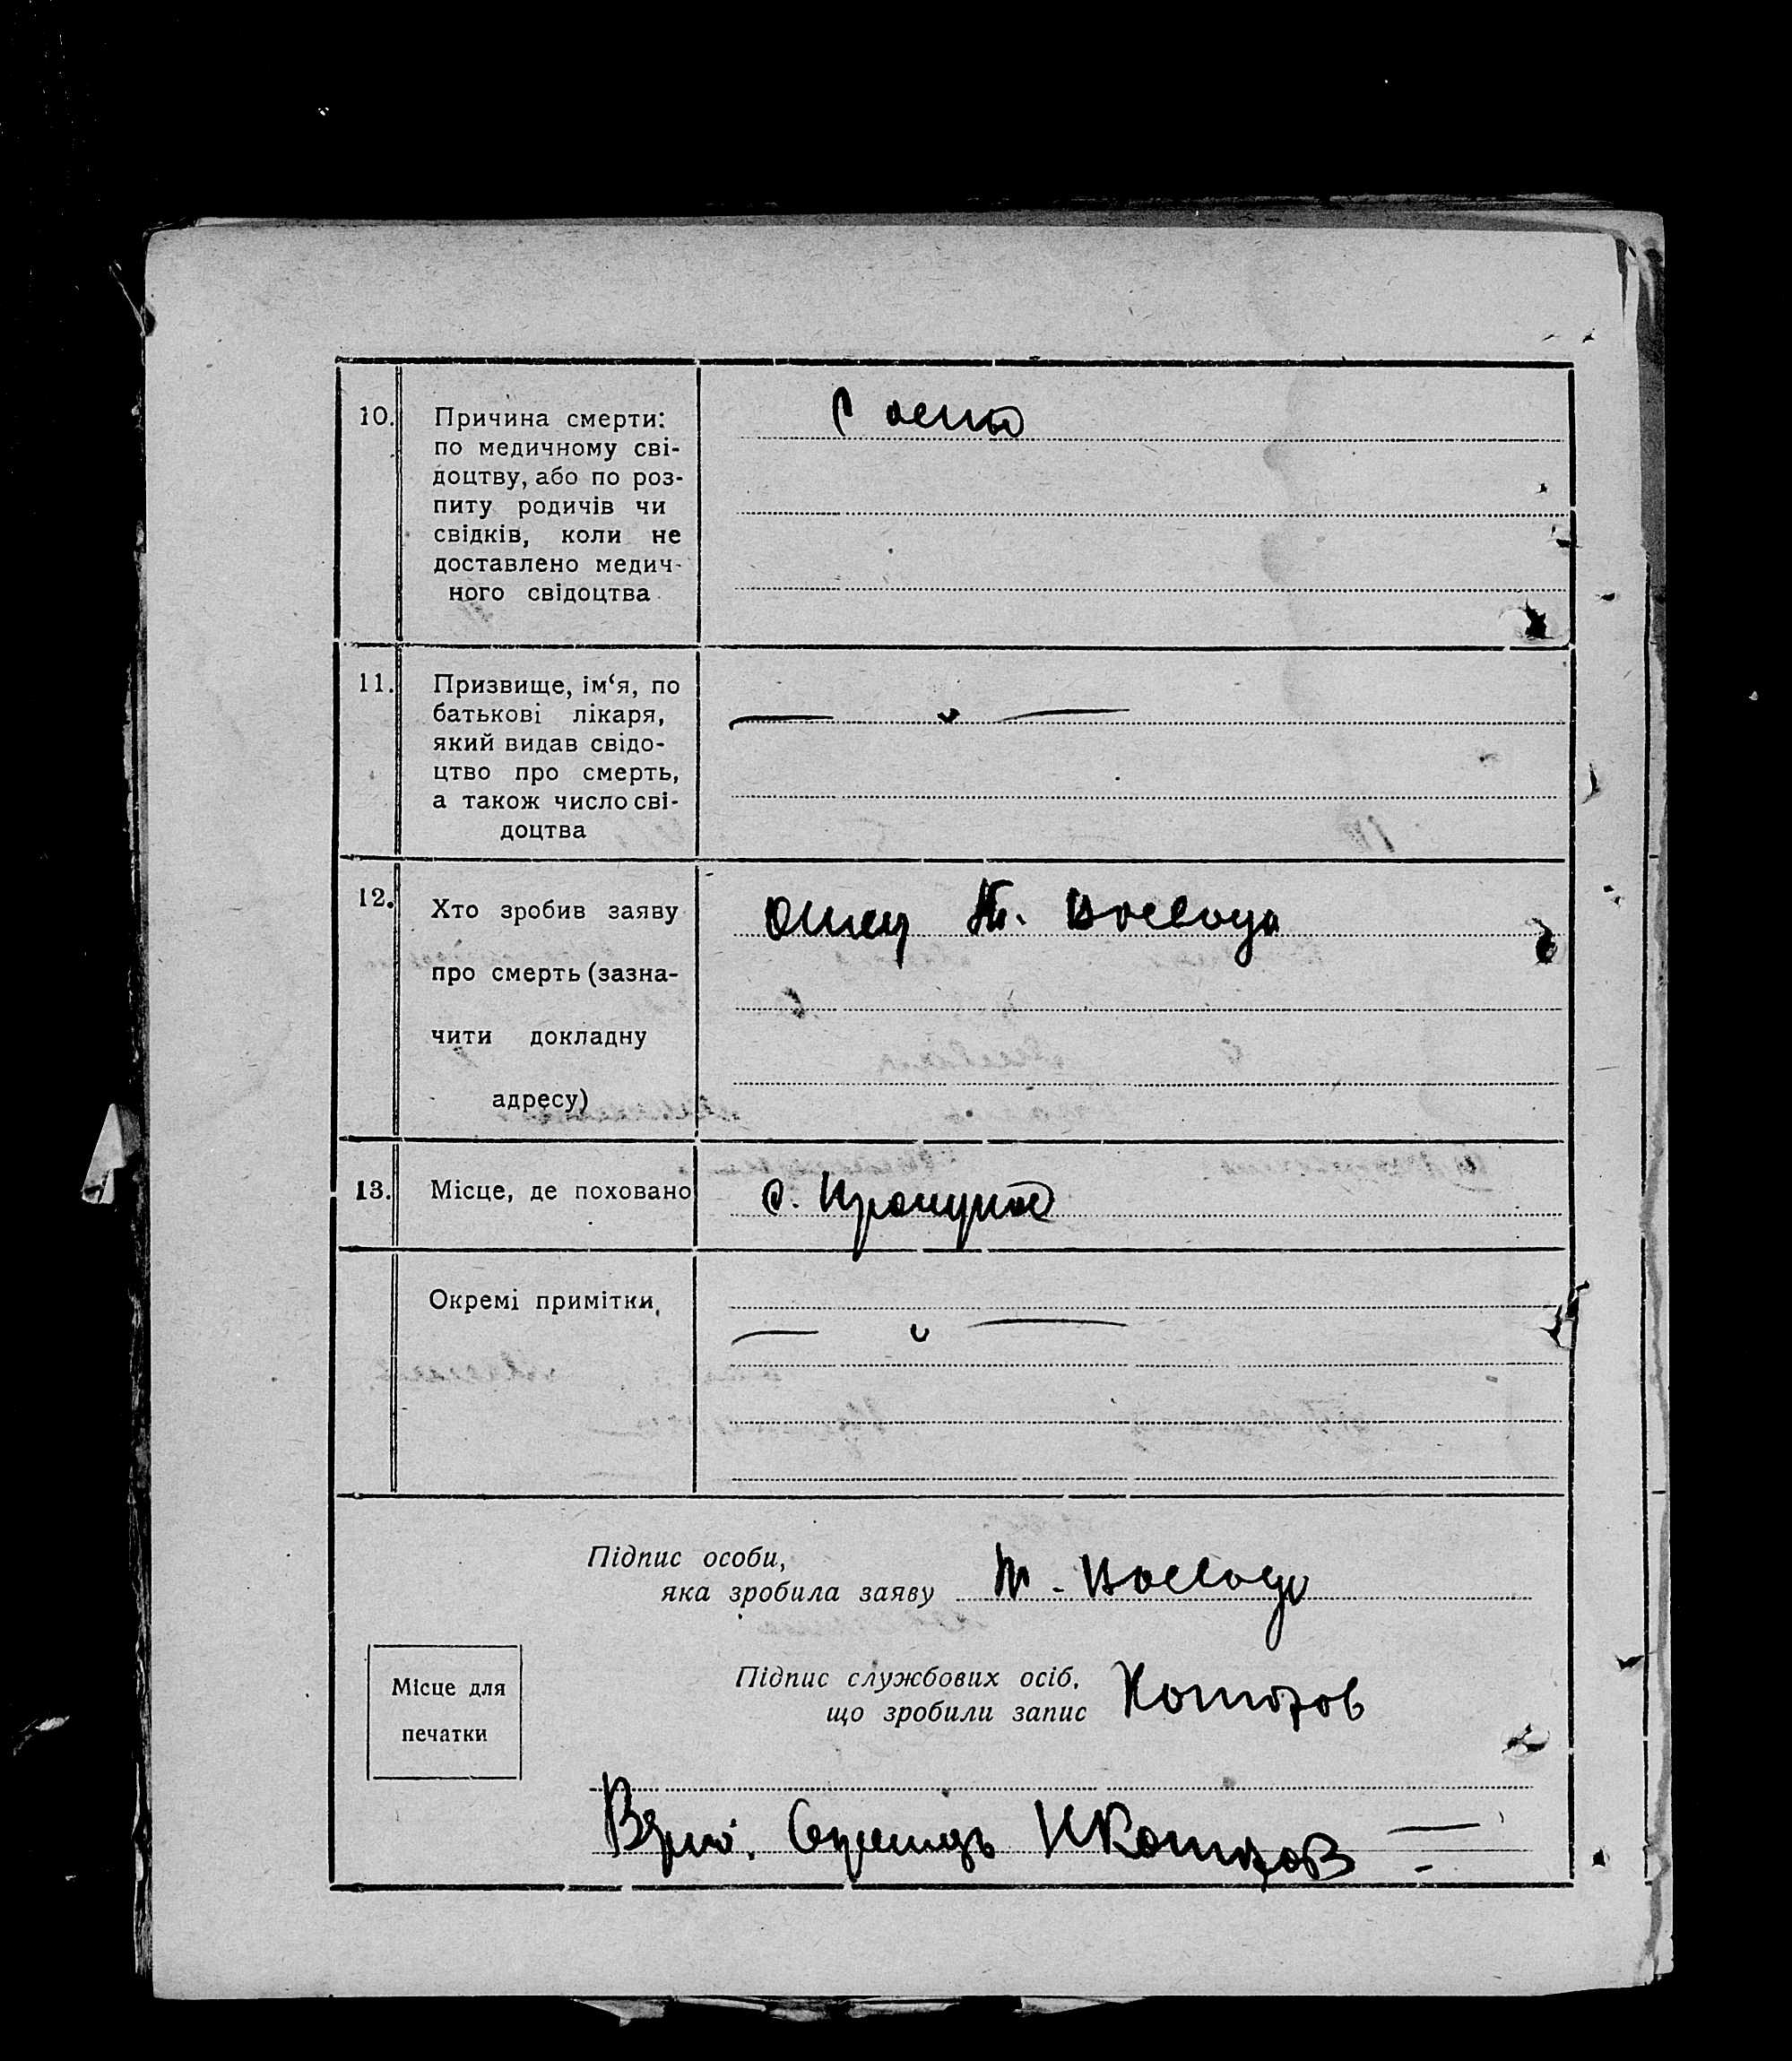 10.
Причина смерти:
по медичному сві-
доцтву, або по роз-
питу родичів чи
свідків, коли не
доставлено медич-
ного свідоцтва
11.
Призвище, ім‘я, по
батькові лікаря,
який видав свідо-
цтво про смерть,
а також число сві-
доцтва
12.
Хто зробив заяву
про смерть (зазна-
чити докладну
адресу)
Отец Т. Воевода
13.
Місце, де поховано
с.
Окремі примітки
Підпис особи,
яка зробила заяву
Т. Воевода
Підпис службових осіб,
що зробили запис
Місце для
печатки